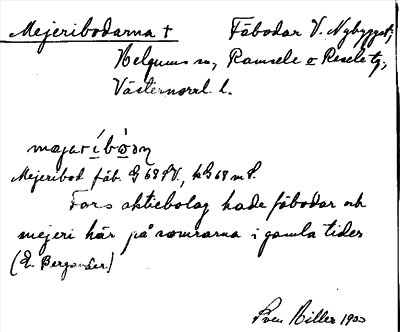 Mejeribodarna + Fäbodar V. Nybygget,
Helgums sn, Ramsele o Resele tg,
Västernorrl l.
mejaríbòdn
Mejeribod fäb. G 68 SV, kG 68 m S.
Fors aktiebolag hade fäbodar och
mejeri här på somrarna i gamla tider
(E. Bergander.)
Sven Hiller 1933